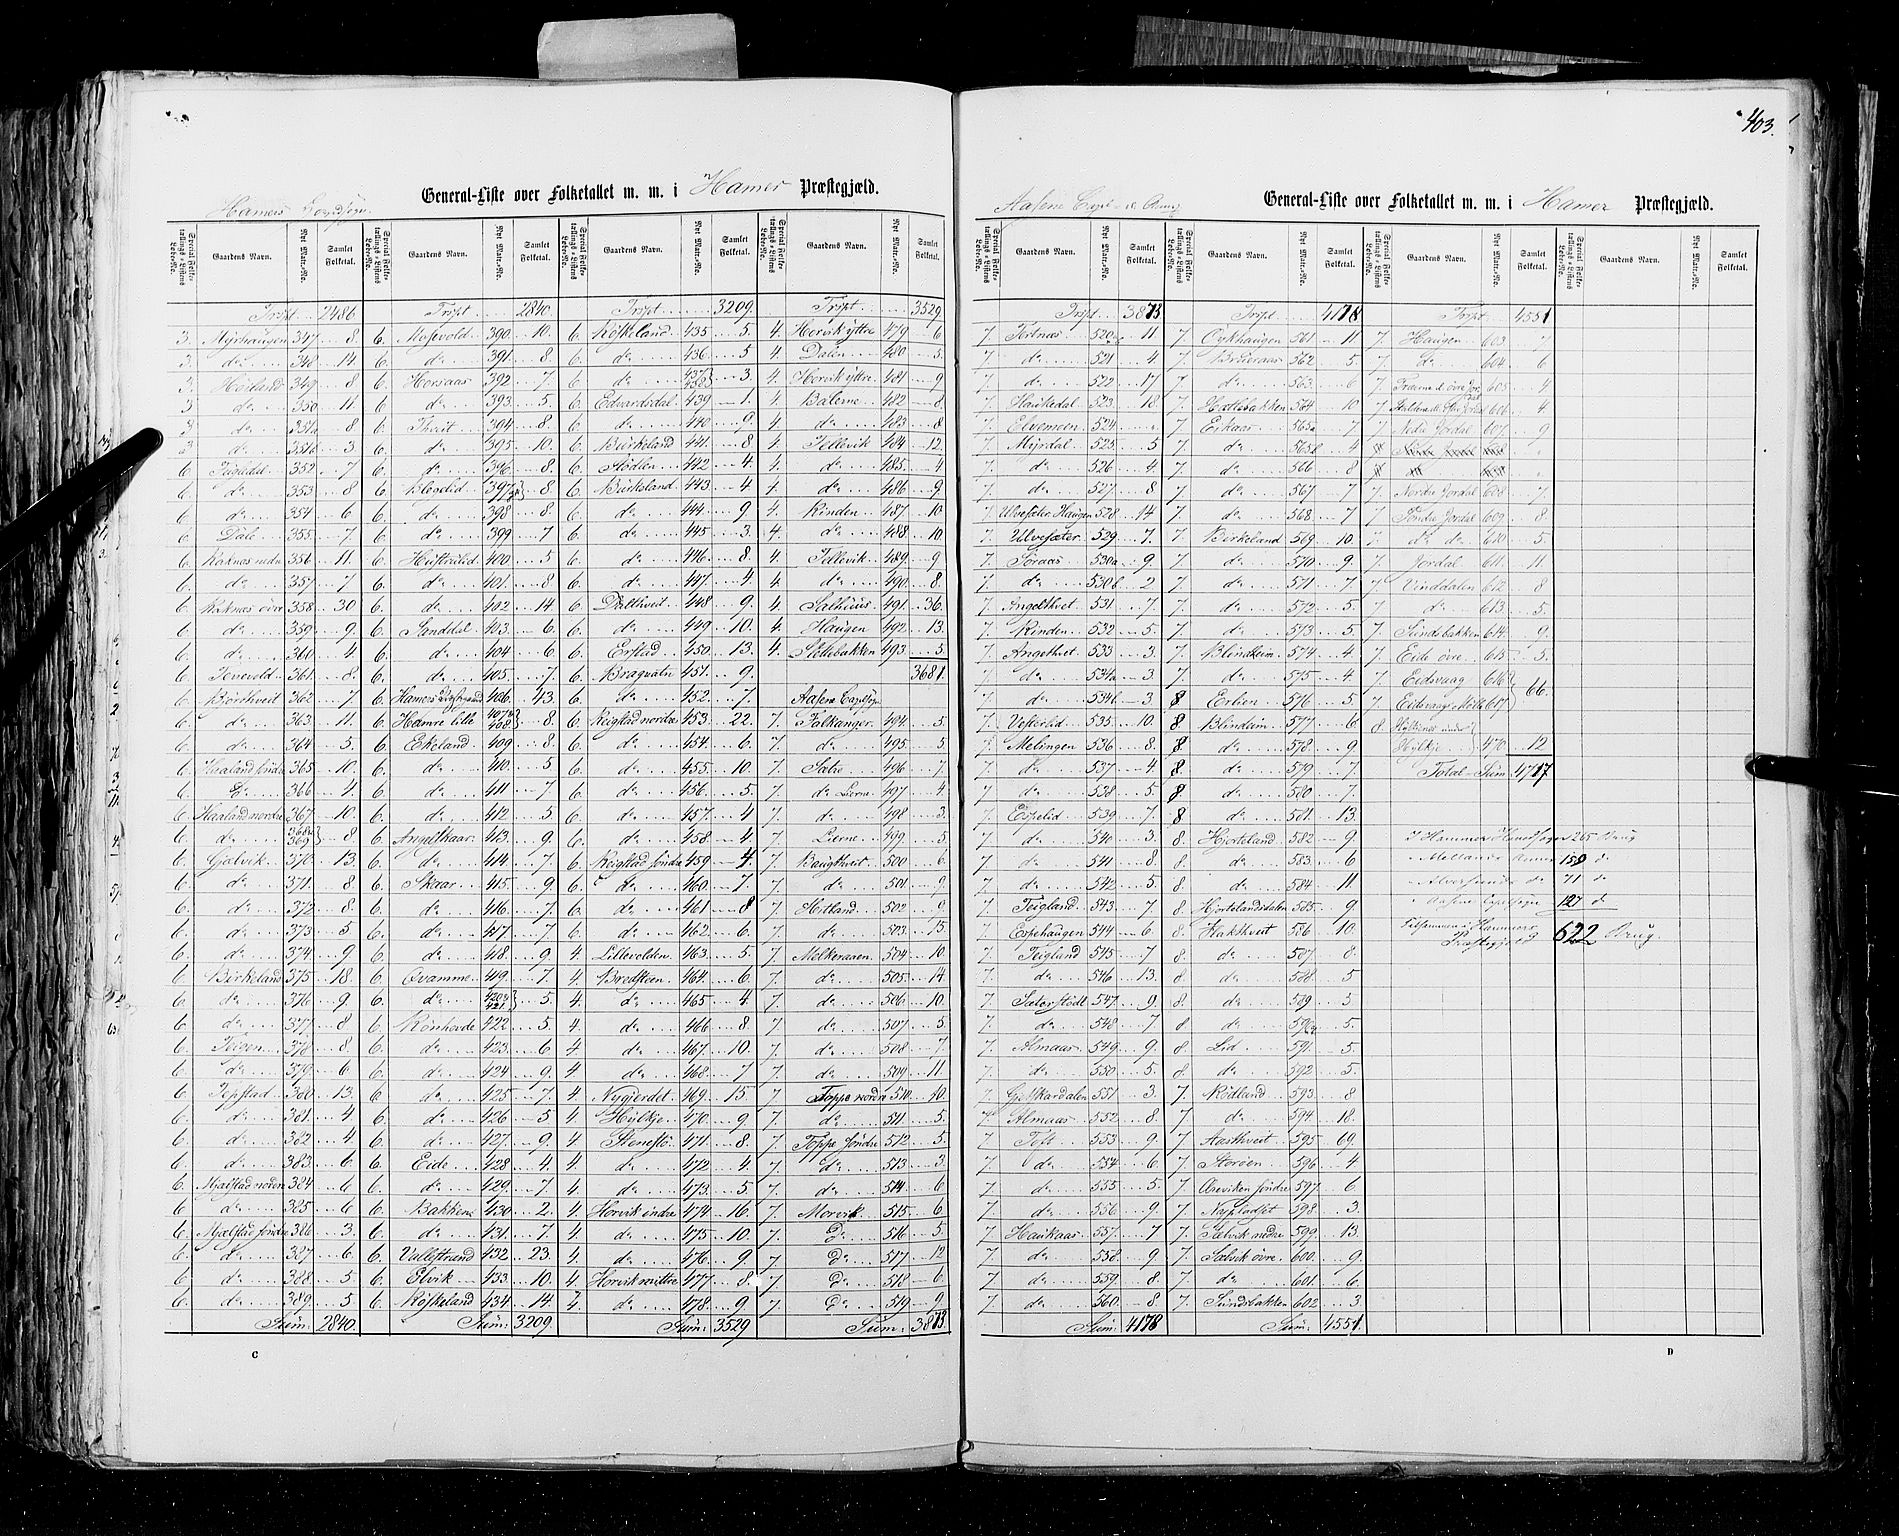 403.
Hamers Hovedsogn.
General-Liste over Folketallet m. m. i Hamer Præstegjæld.
Special Folketællings-Listens Løbe-No. Gaardens Navn. Nyt Matr.-No. Samlet Folketal.
Trspt. 2486
3. Myrhaugen 347 8
3. do 348 14
3. Høiland 349 8
3 do 350 11
3 do 351a 8
3 do 351b 3
6 352 7
6. do 353 8
6. do 354 6
6. Dale 355 7
6. Raknes nedre 356 11
6. do 357 7
6. Raknes øvre 358 30
6. do 359 9
6. do 360 4
6. Tevevold 361 8
6. Børthveit 362 7
6. do 363 11
6. do 364 5
6. Haaland søndre 365 10
6. Do 366 4
6. Haaland nordre 367 10
6. do 368 369 8
6. Gjelvik 370 13
6. do 371 8
6. do 372 8
6. do 373 5
6. do 374 9
6. Birkeland 375 18
6. do 376 9
6. do 377 8
6. Teigen 378 8
6. do 379 6
6. Tepstad 380 13
6. do 381 4
6. do 382 4
6. do 383 6
6. Mjelstad nordre 384 6
6. do 385 6
6. Mjelstad søndre 386 3
6. do 387 6
6. do 388 5
6. do 389 5
Sum: 2840
Trspt 2840
6. Mosevold 390 10
6. do 391 8
6. Horsaas 392 7
6 do 393 5
6. Thveit 394 8
6. do 395 10
6. do 396 8
6. 397 8
6. do 398 8
6. do 399 7
6. Husstrulid 400 5
6. do 401 8
6. do 402 14
6. Sanddal 403 6
6. do 404 6
6. do 405 7
6. Hamers 406 43
6. Hamre lille 407 408 8
6. Ekeland 409 8
6. do 410 5
6. do 411 7
6. do 412 5
6. Angelskaar 413 9
6. do 414 7
6. Skaar 415 9
6. do 416 7
6. do 417 7
6. do 418 9
6. Qvamme 419 7
6. do 420 421 5
6. Rønhovde 422 5
6. do 423 6
6. do 424 9
6. do 425 7
6. do 426 5
6. do 427 9
6. Eide 428 4
6. do 429 7
6. Bakken 430 2
6. do 431 7
6. Vallestrand 432 23
6. Elvik 433 10
6. Røskeland 434 14
Sum: 3209
Trspt 3209
6. Røskeland 435 5
6. do 436 5
6. do 437 438 3
6. Edvardsdal 439 1
6. do 440 9
6. Birkeland 441 8
6. Stødlen 442 4
6. Birkeland 443 4
6. do 444 9
6. do 445 3
6. do 446 8
6. do 447 4
6. Dalthveit 448 9
6. do 449 10
6. Erstad 450 13
6. Bragvatn 451 9
6. do 452 7
6. Reigstad nordre 453 22
6. do 454 6
6. do 455 10
6. do 456 5
6. do 457 4
6. do 458 4
6. Reigstad søndre 459 4
6. do 460 7
6. do 461 8
6. do 462 6
4. Lillevolden 463 5
4. Bredsteen 464 6
4 do 465 4
4. do 466 8
4. do 467 10
4. do 468 7
4. Nygjerdet 469 15
4. Hylkje 470 9
4 Stenestø 471 8
4. do 472 4
4. do 473 5
4. Horvik indre 474 16
4. do 475 10
4. do 476 9
4. Horvik midtre 477 8
4. do 478 9
Sum: 3529
Trspt 3529
4. Horvik yttre 479 6
4. Dalen 480 5
4. Horvik yttre 481 9
4. Balerne 482 8
4 do 483 8
4. Tellevik 484 12
4. do 485 4
4. do 486 9
4. Rinden 487 10
4. do 488 10
4. Tellevik 489 9
4. do 490 8
4. Salhuus 491 36
4. Haugen 492 13
4. Stølebakken 493 5
3681
Aasene Capelsogn
7. Falkanger 494 5
7. do 495 5
7. Sætre 496 7
7. do Lierne 497 4
7 do 498 3
7 Lierne 499 5
7 Haugthveit 500 6
7 do 501 9
7 Hitland 502 9
7. do 503 15
7. Melkeraaen 504 10
7. do 505 14
7. do 506 10
7. do 507 5
7. do 508 7
7. do 509 11
7 Toppe nordre 510 10
7. do 511 5
7. Toppe søndre 512 5
7 Do 513 3
7. do 514 6
7. Morvik 515 6
7 Do 516 5
7 Do 517 12
7 Do 518 6
7. Do 519 9
Sum: 3873
C
Aasene Capel- s. Anng
General-Liste over Folketallet m. m. i Hamer Præstegjæld.
Gaardens Navn. Nyt Matr.-No. Samlet Folketal. Special Folketællings-Listens Løbe-No.
Trspt 3873
7. Tertnæs 520 11
7. do 521 4
7. do 522 17
7. Haukedal 523 18
7. Elvemoen 524
7. Myrdal 525 5
7. do 526 4
7. do 527 8
7. Ulvesæter Haugen 528 14
7. Ulvesæter 529 7
7. Søraas 530a 9
7. do 530b 2
7. Angelthvet 531 7
7. Rinden 532 5
7. Angelthvet 533 3
7. do 534a 3
7. do 534b 3
7. Vesterlid 535 10
7. Melingen 536 8
7. do 537 4
7. do 538 5
7. Espelid 539 7
7. do 540 3
7. do 541 8
7. do 542 5
7. Teigland 543 7
7. Espehaugen 544 6
7. Teigland 545 7
7. do 546 13
7. Sæterstødl 547 9
7. do 548 7
7. Almaas 549 9
7. do 550 5
7. Gjeskardalen 551 3
7. Almaas 552 8
7. 553 9
7. do 554 6
7. do 555 5
7. do 556 9
7. Haukaas 557 7
7. do 558 9
7. do 559 8
7. do 560 8
Sum: 4178
Trspt 4178
7. Øykhaugen 561 11
7. Breieraas 562 5
7. do 563 6
7. Hatlebakken 564 10
7. Eikaas 565a 7
7. do 565b 4
7. do 566 8
7. do 567 7
7. do 568 7
7. Birkeland 569 10
7. do 570 9
7. do 571 7
7. do 572 5
7. do 573 5
7. Blindheim 574 4
7. do 575 4
8 Erlien 576 5
8 Blindeim 577 6
8 do 578 9
8. do 579 7
8 do 580 7
8 do 581 13
8. Hjorteland 582 9
8. do 583 6
8. do 584 11
8. Hjortelandsdalen 585 9
8. Flakthveit 586 10
8. do 587 8
8 do 588 5
8. do 589 3
8 do 590 5
8. Lid 591 5
8. do 592 5
7. Rødland 593 8
7. do 594 18
7. Aasthveit 595 69
7. Storøen 596 4
7. søndre 597 6
7. 598 3
7. Selvik nedre 599 13
7. Selvik øvre 600 9
7. do 601 6
7. Sundsbakken 602 3
Sum: 4551
Trspt 4551
7. Haugen 603 7
7 Do 604 6
7. 605 4
7. 606 4
7. Nedre Jordal 607 9
7. Nordre Jordal 608 7
7. Søndre Jordal 609 8
7. do do 610 5
7. Jordal 611 11
7. Vinddalen 612 8
7 do 613 5
7. Sundsbakken 614 9
7. Eide øvre 615 5
7. Eidsvaag 616
7. Eidsvaags Mølle 617 66
8. under
Hylkje 470 12
Total-Sum 4717
I Hammer Hovedsogn 265 Brug
" Mellands Annex 158 d
" Alversunds do 71 d
" Aasene Capelsogn 127 d
Tilsammen i Hammers
Præstegjeld 622 Brug.
D